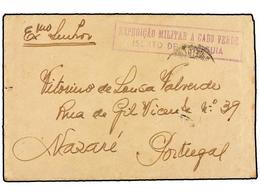 Exmo Senhor
EXPEDIÇÃO MILITAR A CABO VERDE
ISENTO DE FRANQUIA
Vitorino de Sousa Valverde
Rua de Gil Vicente N.º 39
Nazaré
Portugal